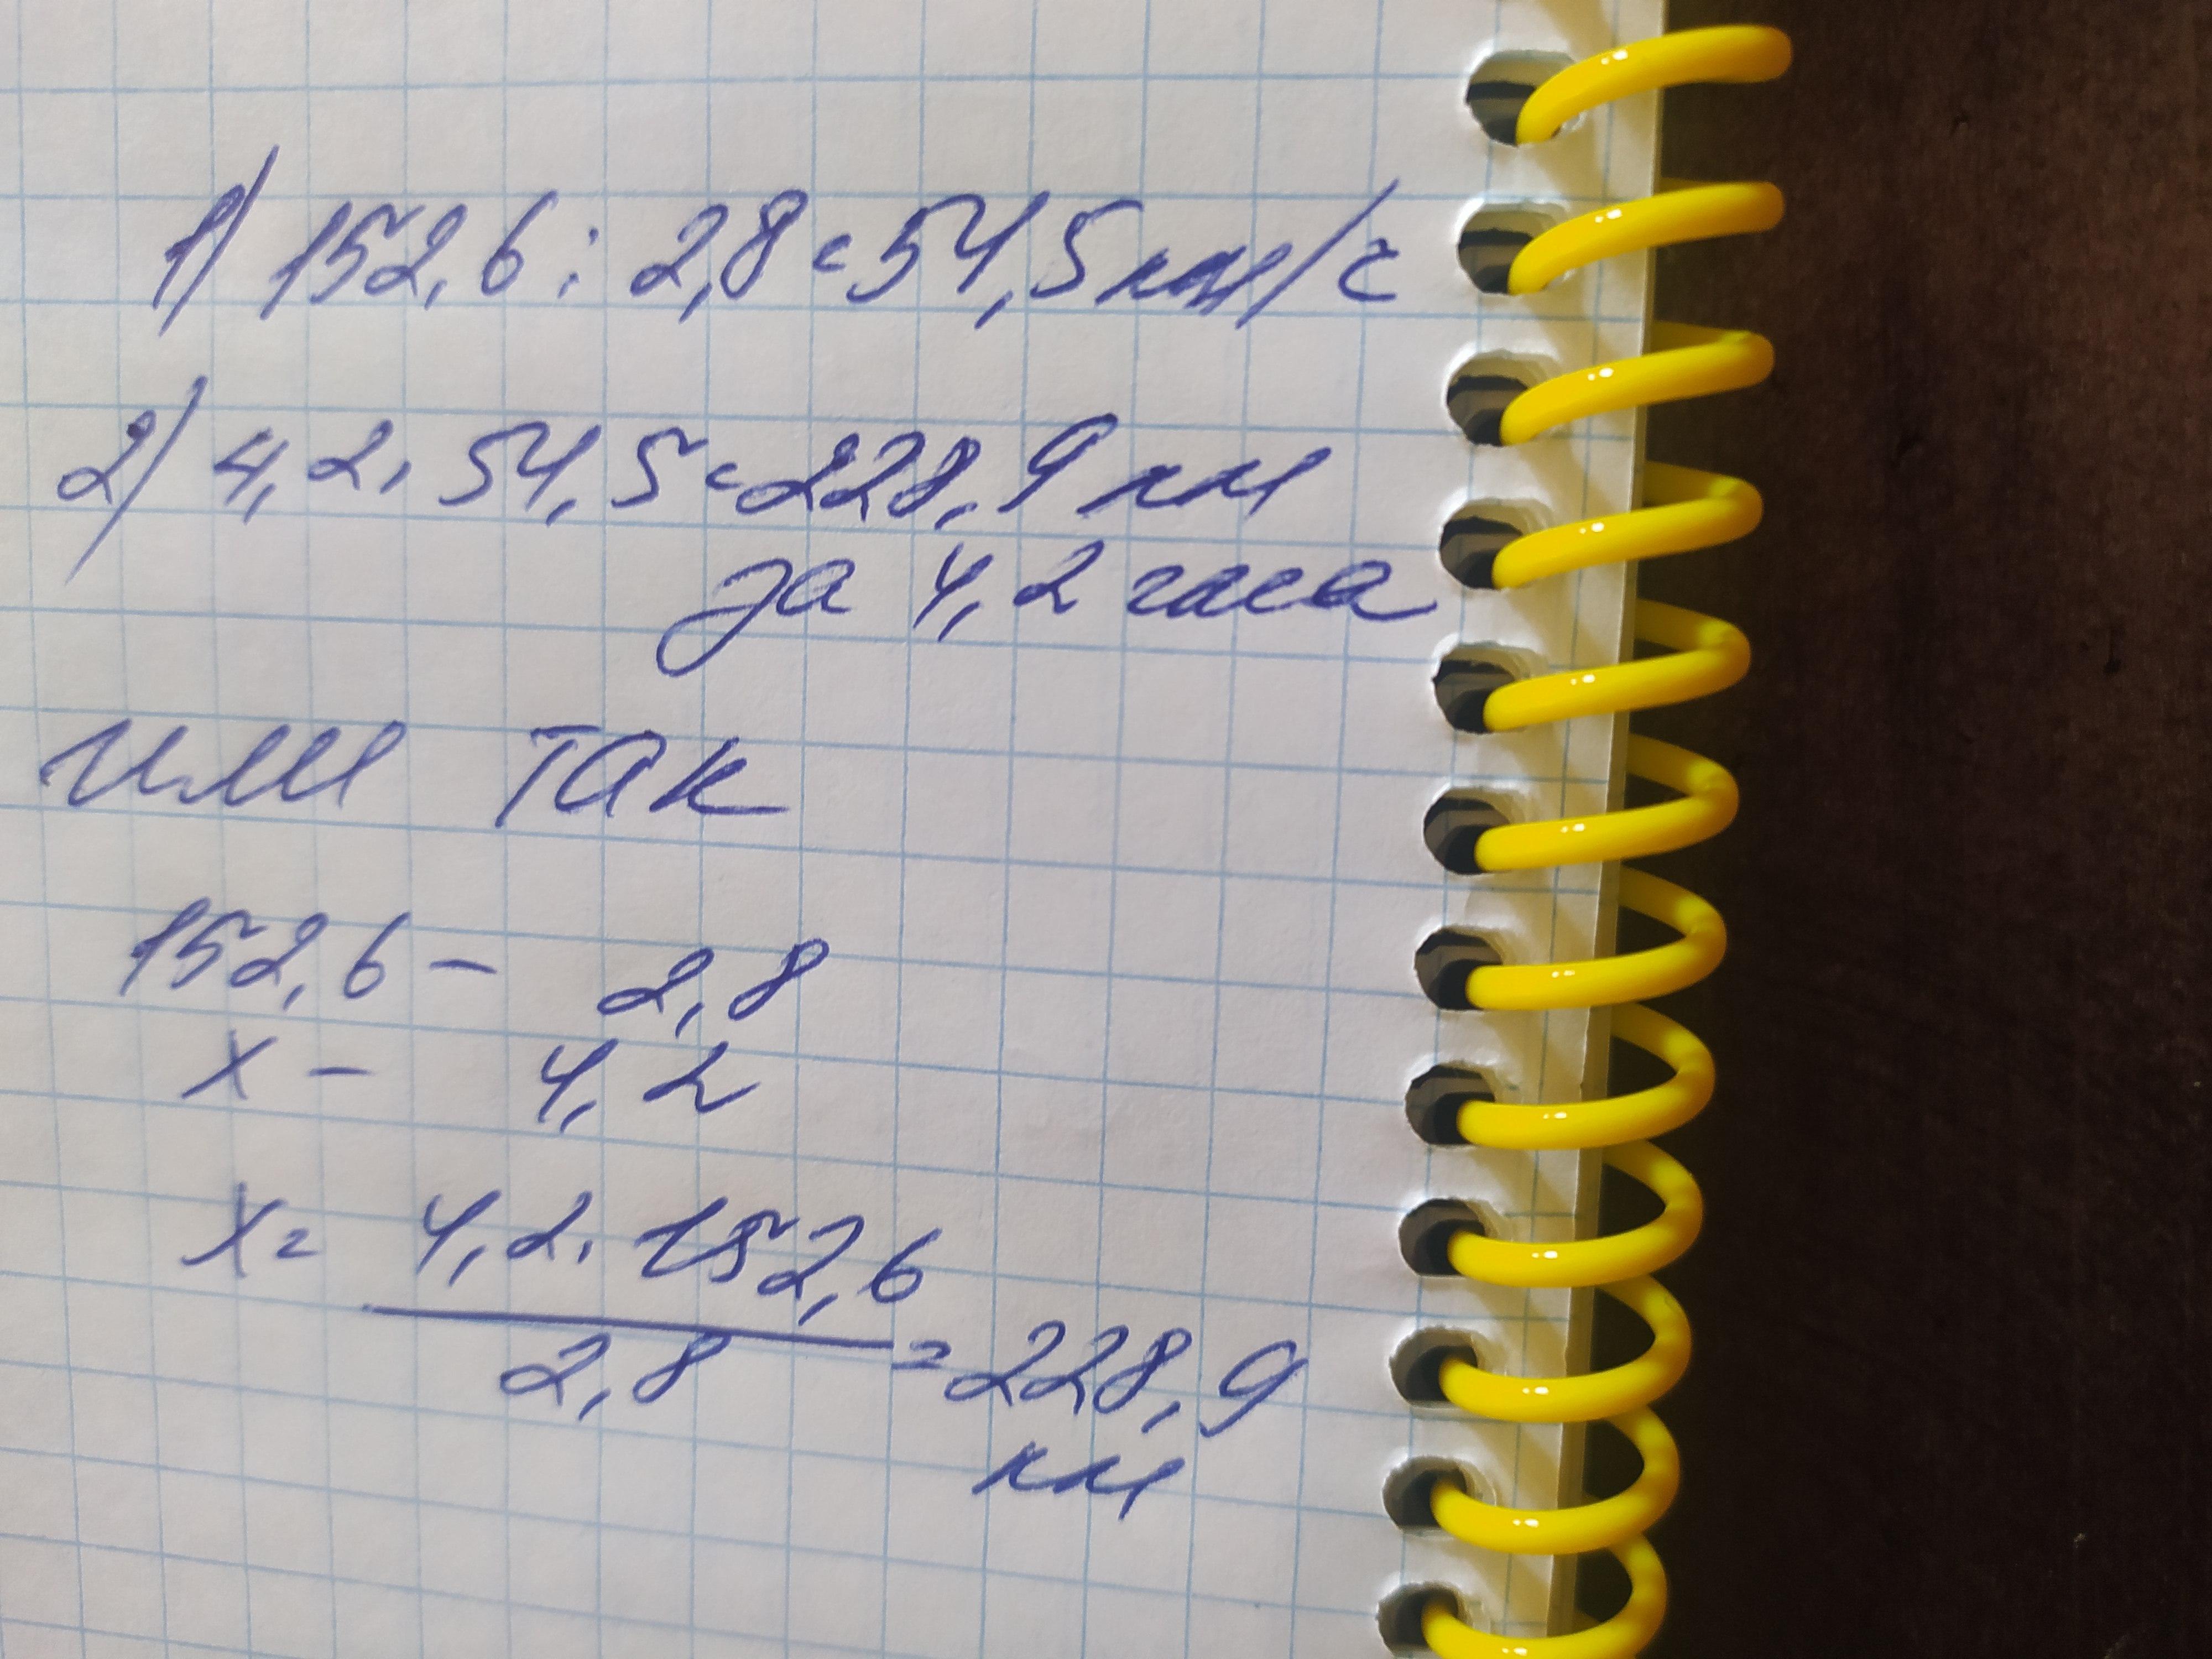 1) 152,6 : 2,8 = 54,5 км/ч
2) 4,2 · 54,5 = 228,9 км
за 4,2 часа
или так
152,6 – 2,8
х – 4,2
х = 4,2 · 152,6
2,8 = 228,9
км